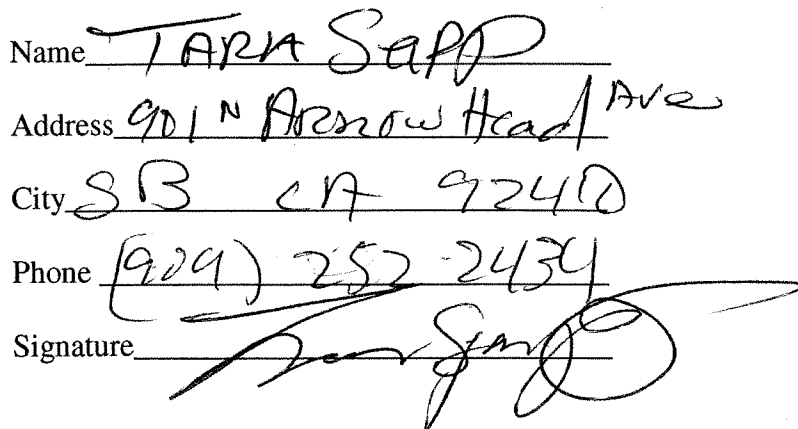 Name TARA Sapp
Address 901 N Arrow Head Ave
City SB CA 92410
Phone (909) 252-2434
Signature